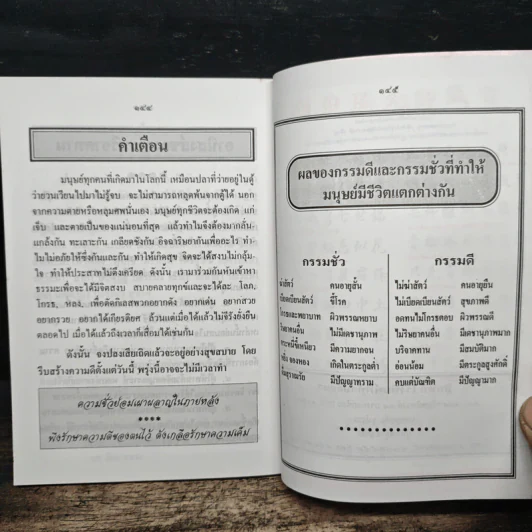 ๑๔๔
คำเตือน
มนุษย์ทุกคนที่เกิดมาในโลกนี้ เหมือนปลาที่ว่ายอยู่ในตู้
ว่ายวนเวียนไปมาไม่รู้จบ จะไม่สามารถหลุดพ้นจากตู้ได้ นอก
จากความตายหรือหลุมศพนั่นเอง มนุษย์ทุกชีวิตจะต้องเกิด แก่
เจ็บ และตายเป็นของแน่นอนที่สุด แล้วทำไมจึงต้องมากลั่น
แกล้งกัน ทะเลาะกัน เกลียดชังกัน อิจฉาริษยากันเพื่ออะไร ทำ
ไมไม่อภัยให้ซึ่งกันและกัน ทำให้เกิดสุข จิตจะได้สงบไม่กลุ้ม
ใจ ทำให้ประสาทไม่ตึงเครียด ดังนั้น เรามาร่วมกันหันเข้าหา
ธรรมะเพื่อจะได้มีจิตสงบ สบายคลายทุกข์และจะได้ละ โลภ,
โกรธ, หลง, เพื่อตัดกิเลสพวกอยากดัง อยากเด่น อยากสวย
อยากรวย อยากได้เกียรติยศ ล้วนแต่เมื่อได้แล้วไม่จีรังยั่งยืน
ตลอดไป เมื่อได้แล้วถึงเวลาก็เสื่อมได้เช่นกัน
ดังนั้น จงปลงเสียเถิดแล้วจะอยู่อย่างสุขสบาย โดย
รีบสร้างความดีตั้งแต่วันนี้ พรุ่งนี้อาจจะไม่มีเวลาทำ
ความชั่วย่อมเผาผลาญในภายหลัง
****
พึงรักษาความดีของตนไว้ ดังเกลือรักษาความเค็ม
๑๔๕
ผลของกรรมดีและกรรมชั่วที่ทำให้
มนุษย์มีชีวิตแตกต่างกัน
กรรมชั่ว กรรมดี
ฆ่าสัตว์ คนอายุสั้น ไม่ฆ่าสัตว์ คนอายุยืน
เบียดเบียนสัตว์ ขี้โรค ไม่เบียดเบียนสัตว์ สุขภาพดี
โกรธและพยาบาท ผิวพรรณหยาบ อดทนไม่โกรธตอบ ผิวพรรณดี
ริษยาคนอื่น ไม่มีเดชานุภาพ ไม่ริษยาคนอื่น มีเดชานุภาพมาก
ตระหนี่ขี้เหนียว มีความยากจน บริจาคทาน มีสมบัติมาก
หยิ่ง จองหอง เกิดในตระกูลต่ำ อ่อนน้อม มีตระกูลสูงศักดิ์
มีปัญญาทราม คบแต่บัณฑิต มีปัญญามาก